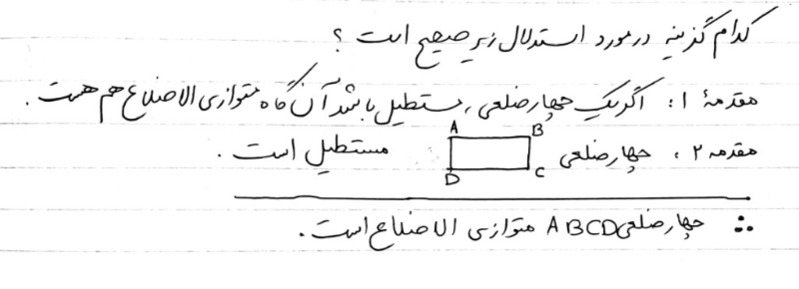 کدام گزینه در مورد استدلال زیر صحیح است ؟
مقدمهٔ ۱ : اگر یک چهارضلعی ، مستطیل باشد آن گاه متوازی الاضلاع هم هست .
مقدمه ۲ : چهارضلعی A B C D مستطیل است .
∴ چهارضلعی ABCD متوازی الاضلاع است .